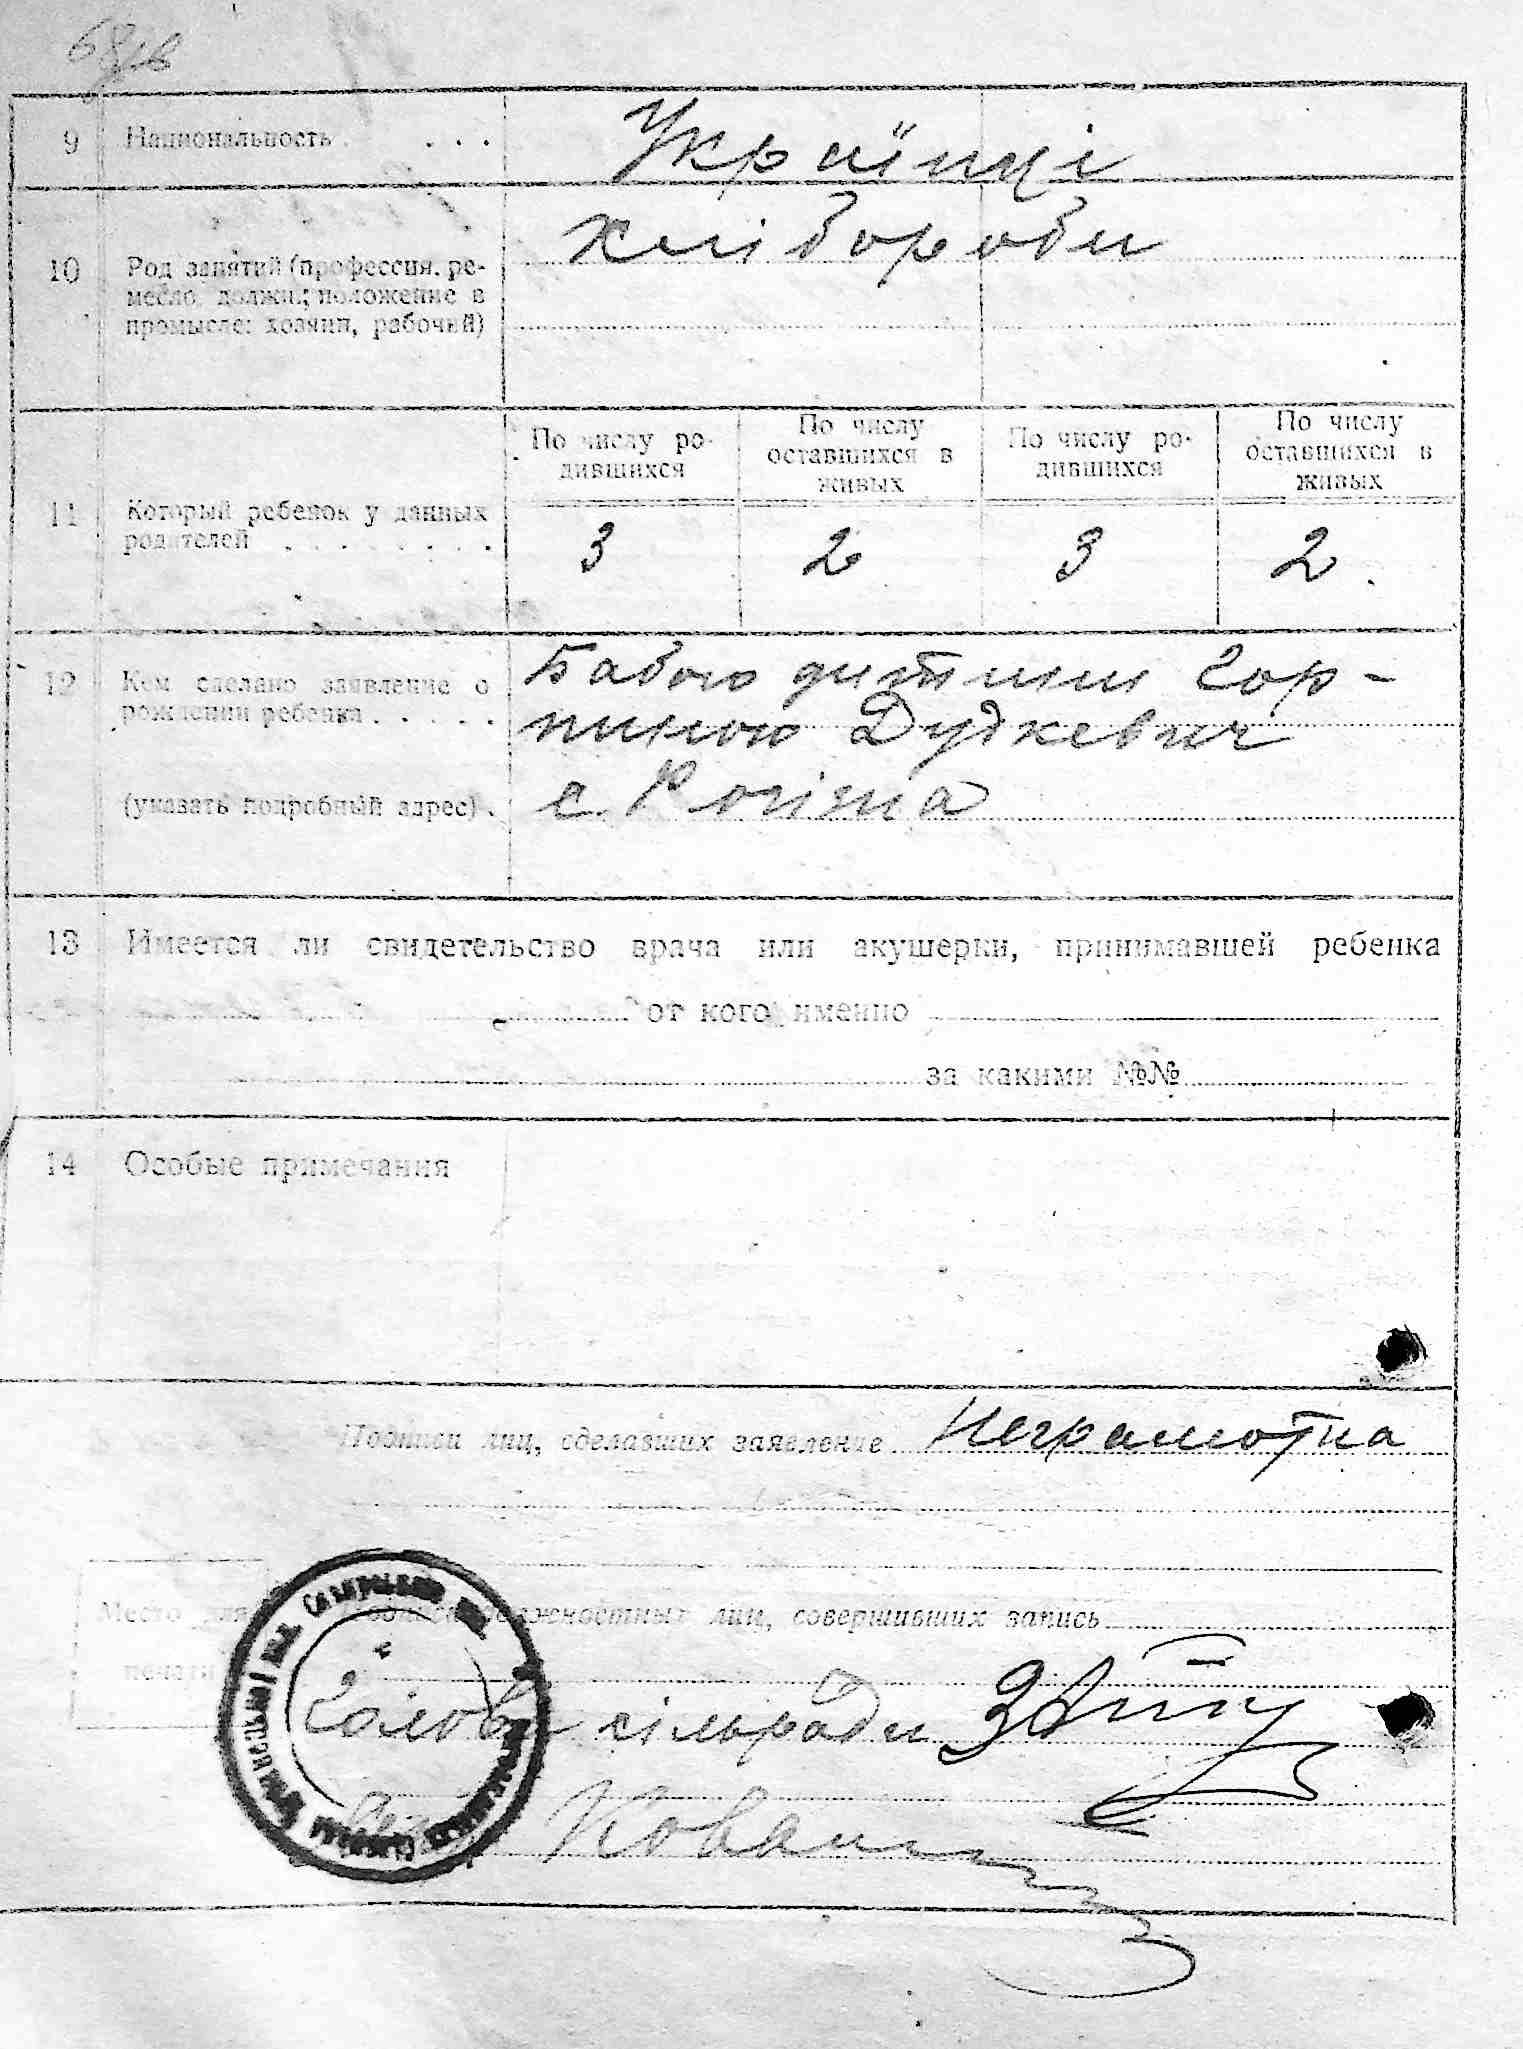 9 Национальность . . . .
Українці
хлібороби
10 Род занятий (профессия, ре-
месло, должн.; положение в
промысле: хозяин, рабочий)
По числу ро-
дившихся
По числу
оставшихся в
живых
По числу ро-
дившихся
По числу
оставшихся в
живых
11 Который ребенок у данных
родителей . . . . . . . .
3 2 3 2
12 Кем сделано заявление о
рождении ребенка . . . . .
(указать подробный адрес) .
Бабою дитини Гор-
пиною Дудкевич
с. Рогізна
13 Имеется ли свидетельство врача или акушерки, принимавшей ребенка
от кого именно
за какими №№
14 Особые примечания
Подписи лиц, сделавших заявление Неграмотна
Место для
печати
Подписи должностных лиц, совершивших запись
Голова сільради